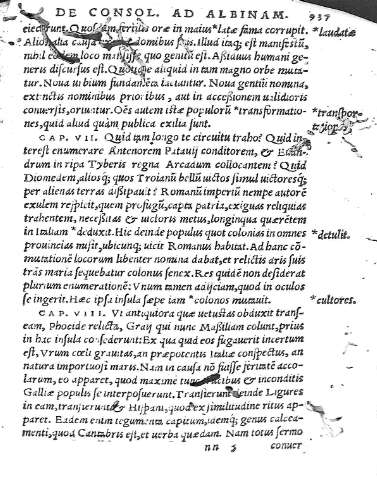 DE CONSOL. AD ALBINAM. 937
eiecerunt. Quosdam fertilis oræ in maius *latæ fama corrupit. *laudatæ
Alios causa domibus suis. Illud itaq; est manifestũ,
nihil eodem loco mansisse quo genitũ est. Aßiduus humani ge
neris discursus est. Quotidie aliquid in tam magno orbe muta-
tur. Noua urbium fundamenta iaciuntur. Noua gentiũ nomina,
extinctis nominibus prioribus, aut in accessionem ualidioris
conuersis, oriuntur. Oẽs autem istæ populorũ *transformatio- *transpor-
nes, quid aliud quàm publica exilia sunt. tationes,
CAP. VII. Quid tam longo te circuitu traho? Quid in-
terest enumerare Antenorem Patauij conditorem, & Euan-
drum in ripa Tyberis regna Arcadum collocantem? Quid
Diomedem, alios´q; quos Troianũ bellũ uictos simul uictores´q;
per alienas terras dißipauit? Romanũ imperiũ nempe autorẽ
exulem respicit, quem profugũ, capta patria, exiguas reliquias
trahentem, necessitas & uictoris metus, longinqua quærẽtem
in Italiam *deduxit. Hic deinde populus quot colonias in omnes *detulit.
prouincias misit, ubicunq; uicit Romanus habitat. Ad hanc cõ-
mutationẽ locorum libenter nomina dabat, et relictis aris suis
trãs maria sequebatur colonus senex. Res quidẽ non desiderat
plurium enumerationẽ: Vnum tamen adijciam, quod in oculos
se ingerit. Hæc ipsa insula sæpe iam *colonos mutauit. *cultores.
CAP. VIII. Vt antiquiora quæ uetustas obduxit trans-
eam, Phocide relicta, Graij qui nunc Maßiliam colunt, prius
in hac insula consederunt: Ex qua quid eos fugauerit incertum
est, Vtrum cœli grauitas, an præpotentis Italiæ conspectus, an
natura importuosi maris. Nam in causa nõ fuisse feritatẽ acco-
larum, eo apparet, quod maxime tunc trucibus & inconditis
Galliæ populis se interposuerunt. Transierunt deinde Ligures
in eam, transierunt & Hispani, quod ex similitudine ritus ap-
paret. Eadem enim tegumenta capitum, idem´q; genus calcea-
menti, quod Cantabris est, et uerba quædam. Nam totus sermo
nn 5 conuer